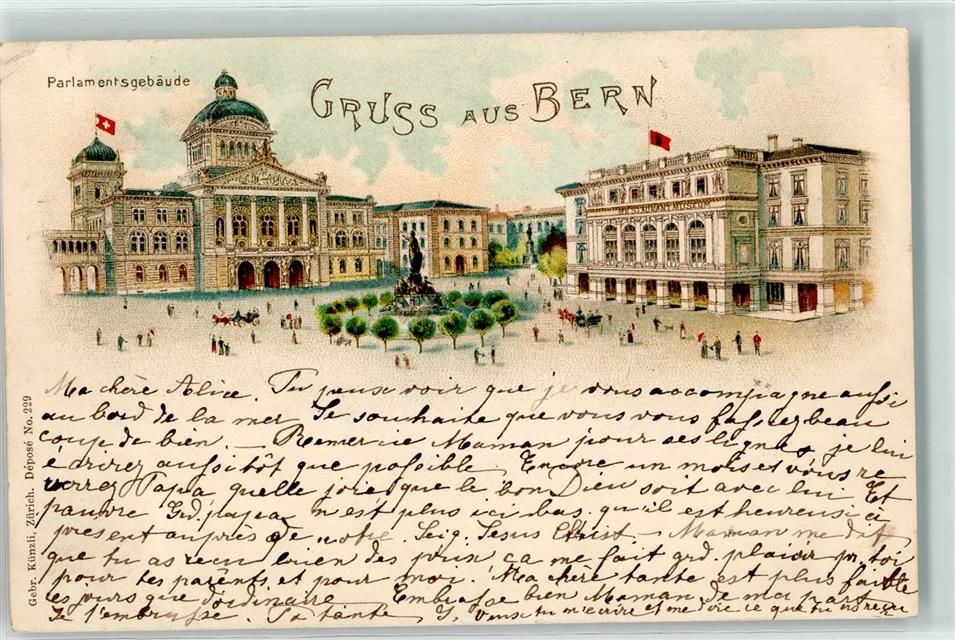 Parlamentsgebäude
GRUSS AUS BERN
Gebr. Künzli, Zürich. Déposé No. 229
Ma chère Alice. Tu peux voir que je vous accompagne aussi
au bord de la mer Je souhaite que vous vous fassiez beau
coup de bien. — Remercie Maman pour ses lignes, je lui
écrirez aussitôt que possible. Encore un mois et vous re
verrez Papa quelle joie que le bon Dieu soit avec lui Et
pauvre Grd. papa n'est plus ici bas qu'il est heureux à
présent auprès de notre Seig. Jesus Christ. — Maman me dit
que tu as reçu bien des prix ça me fait grd. plaisir pr. toi
pour tes parents et pour moi. Ma chère tante est plus faible
ces jours que d'ordinaire — Embrasse bien Maman de ma part
Je t'embrasse. Ta tante Veux tu m'écrire et me dire ce que tu as reçu